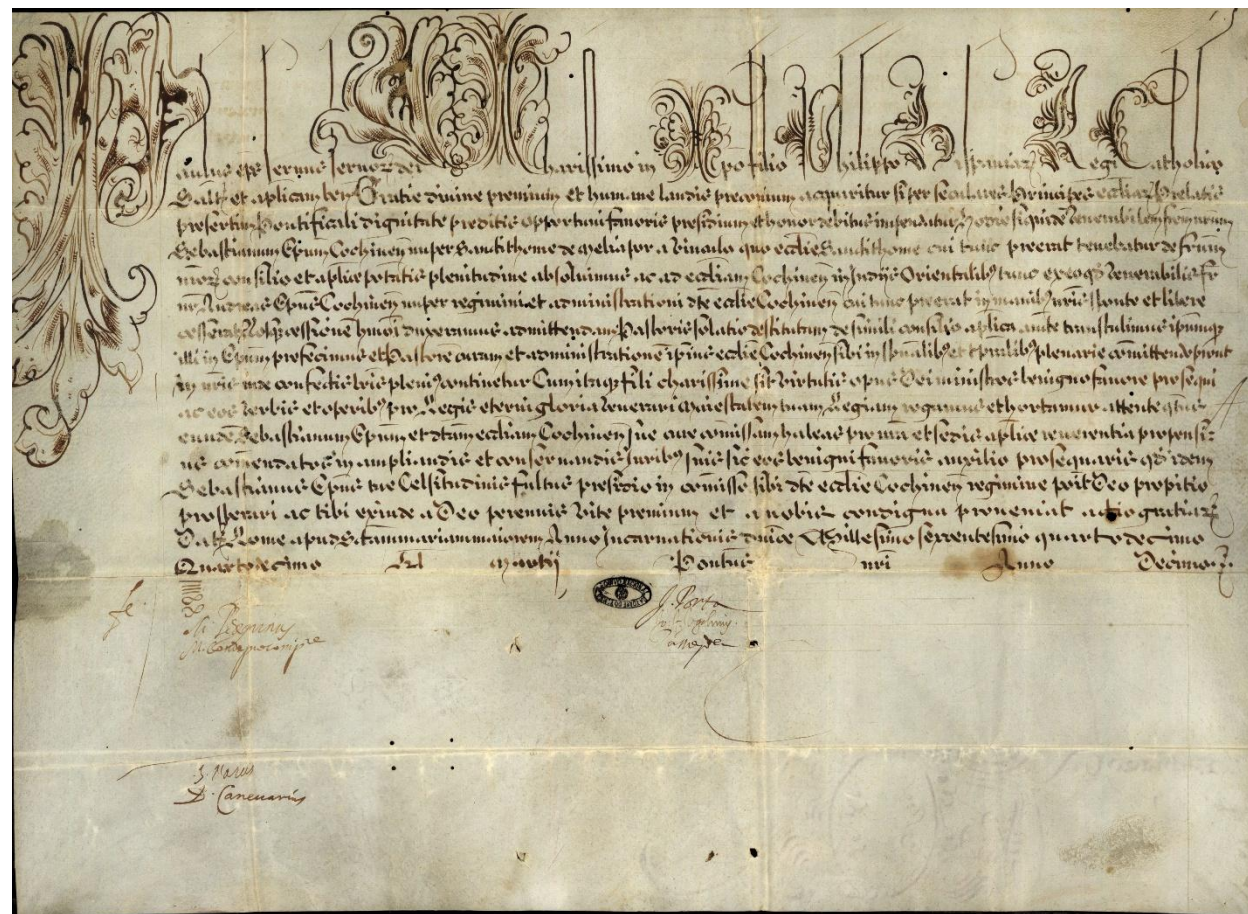 Paulus eps servus servoꝝ dei Charissimo in Xpo filio Philippo Hispaniaꝝ Regi Catholico
Saltm et aplicam ben Gratie divine premium et humane laudis preconium acquiritur si per seculares Principes eccliaꝝ Prelatis
presertim Pontificali dignitate preditis opportuni favoris presidium et honor debitus impendatur Hodie siquidem Venerabilem frem nrum
Sebastianum Epum Cochinen nuper Sancti thome de Meliapor a Vinculo quo ecclie Sancti thome cui tunc preerat tenebatur de frum
nroꝝ consilio et aplice potatis plenitudine absolvimus ac ad eccliam Cochinen in Indijs Orientalibꝰ tunc ex eo qd Venerabilis fr
nr Andreas Epus Cochinen nuper regimini et administrationi dte ecclie Cochinen cui tunc preerat in manibꝰ nris sponte et libere
cesserat Nosqꝫ cessione hmoi duxeramus admittendam Pastoris solatio destitutam de simili consilio aplica aucte transtulimus ipumqꝫ
illi in Epum prefecimus et Pastore curam et administratione ipius ecclie Cochinen sibi in spualibꝰ et tpralibꝰ plenarie comittendo prout
in nris inde confectis lris pleniꝰ continetur Cum itaqꝫ fili charissime sit Virtutis opus Dei ministros benigno favore prosequi
ac eos Verbis et operibꝰ pro Regis eterni gloria Venerari Maiestatem tuam Regiam rogamus et hortamur attente qtus
eunde Sebastianum Epum et dtam eccliam Cochinen sue cure comissam habeas pro nra et sedis aplice reverentia propensi-
us comendatos in ampliandis et conservandis Juribꝰ suis sic eos benigni favoris auxilio prosequaris qd idem
Sebastianus Epus tue Celsitudinis fultus presidio in comisso sibi dte ecclie Cochinen regimine posit Deo propitio
prosperari ac tibi exinde a Deo perennis Vite premium et a nobis condigna proveniat actio gratiaꝝ
Dat Rome apud Sanctam mariam maiorem Anno Incarnationis dnice Millesimo sexcentesimo quarto decimo
Quarto decimo Kl Martij Pontus nri Anno Decimo
J. Porta
D. Canevarius